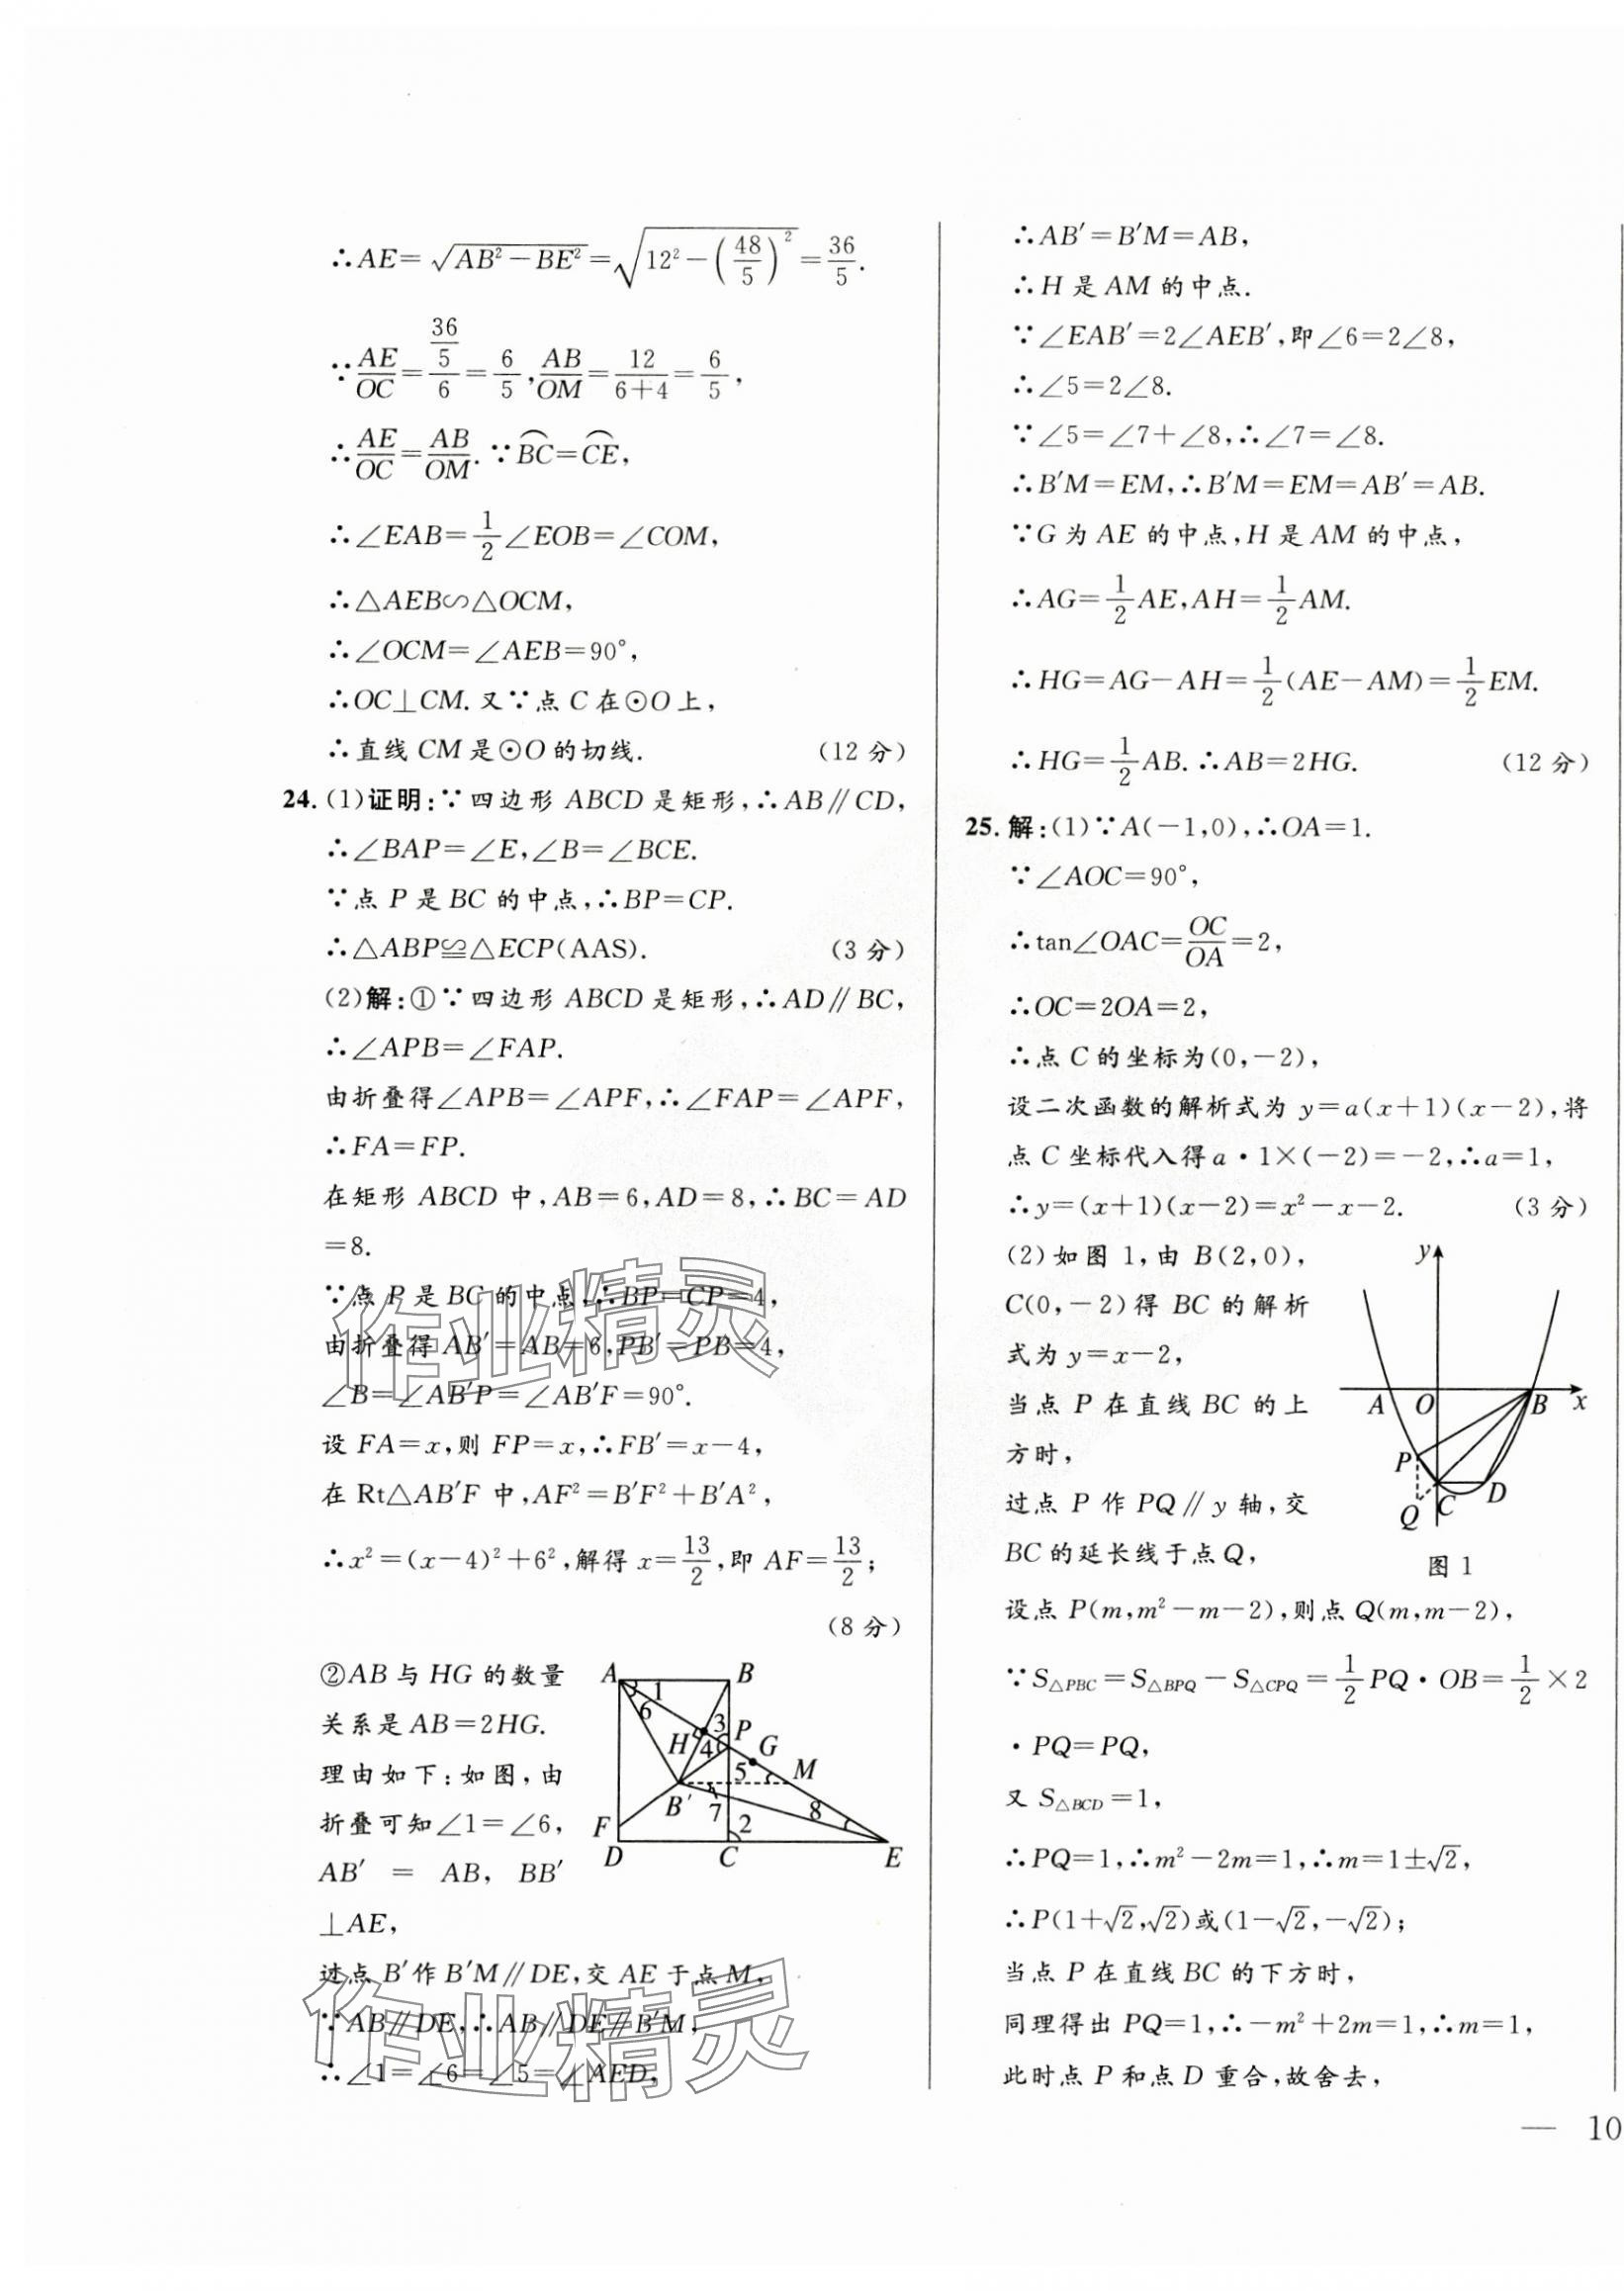 ∴AE=√(AB²-BE²)=√(12²-(48/5)²)=36/5.
∵AE/OC=(36/5)/6=6/5,AB/OM=12/(6+4)=6/5,
∴AE/OC=AB/OM.∵⌒BC=⌒CE,
∴∠EAB=1/2∠EOB=∠COM,
∴△AEB∽△OCM,
∴∠OCM=∠AEB=90°,
∴OC⊥CM.又∵点C在⊙O上,
∴直线CM是⊙O的切线. (12分)
24.(1)证明:∵四边形ABCD是矩形,∴AB∥CD,
∴∠BAP=∠E,∠B=∠BCE.
∵点P是BC的中点,∴BP=CP.
∴△ABP≌△ECP(AAS). (3分)
(2)解:①∵四边形ABCD是矩形,∴AD∥BC,
∴∠APB=∠FAP.
由折叠得∠APB=∠APF,∴∠FAP=∠APF,
∴FA=FP.
在矩形ABCD中,AB=6,AD=8,∴BC=AD
=8.
∵点P是BC的中点,∴BP=CP=4,
由折叠得AB′=AB=6,PB′=PB=4,
∠B=∠AB′P=∠AB′F=90°.
设FA=x,则FP=x,∴FB′=x-4,
在Rt△AB′F中,AF²=B′F²+B′A²,
∴x²=(x-4)²+6²,解得x=13/2,即AF=13/2;
(8分)
②AB与HG的数量
关系是AB=2HG.
理由如下:如图,由
折叠可知∠1=∠6,
AB′ = AB, BB′
⊥AE,
A B 1 6 3 H 4 P G 5 M B′ 7 8 F 2 D C E
过点B′作B′M∥DE,交AE于点M,
∵AB∥DE,∴AB∥DE∥B′M,
∴∠1=∠6=∠5=∠AED,
作业精灵
作业精灵
∴AB′=B′M=AB,
∴H是AM的中点.
∵∠EAB′=2∠AEB′,即∠6=2∠8,
∴∠5=2∠8.
∵∠5=∠7+∠8,∴∠7=∠8.
∴B′M=EM,∴B′M=EM=AB′=AB.
∵G为AE的中点,H是AM的中点,
∴AG=1/2AE,AH=1/2AM.
∴HG=AG-AH=1/2(AE-AM)=1/2EM.
∴HG=1/2AB.∴AB=2HG. (12分)
25.解:(1)∵A(-1,0),∴OA=1.
∵∠AOC=90°,
∴tan∠OAC=OC/OA=2,
∴OC=2OA=2,
∴点C的坐标为(0,-2),
设二次函数的解析式为y=a(x+1)(x-2),将
点C坐标代入得a·1×(-2)=-2,∴a=1,
∴y=(x+1)(x-2)=x²-x-2. (3分)
(2)如图1,由B(2,0),
C(0,-2)得BC的解析
式为y=x-2,
当点P在直线BC的上
方时,
过点P作PQ∥y轴,交
BC的延长线于点Q,
y A O B x P Q C D
图1
设点P(m,m²-m-2),则点Q(m,m-2),
∵S△PBC=S△BPQ-S△CPQ=1/2PQ·OB=1/2×2
·PQ=PQ,
又S△BCD=1,
∴PQ=1,∴m²-2m=1,∴m=1±√2,
∴P(1+√2,√2)或(1-√2,-√2);
当点P在直线BC的下方时,
同理得出PQ=1,∴-m²+2m=1,∴m=1,
此时点P和点D重合,故舍去,
— 10